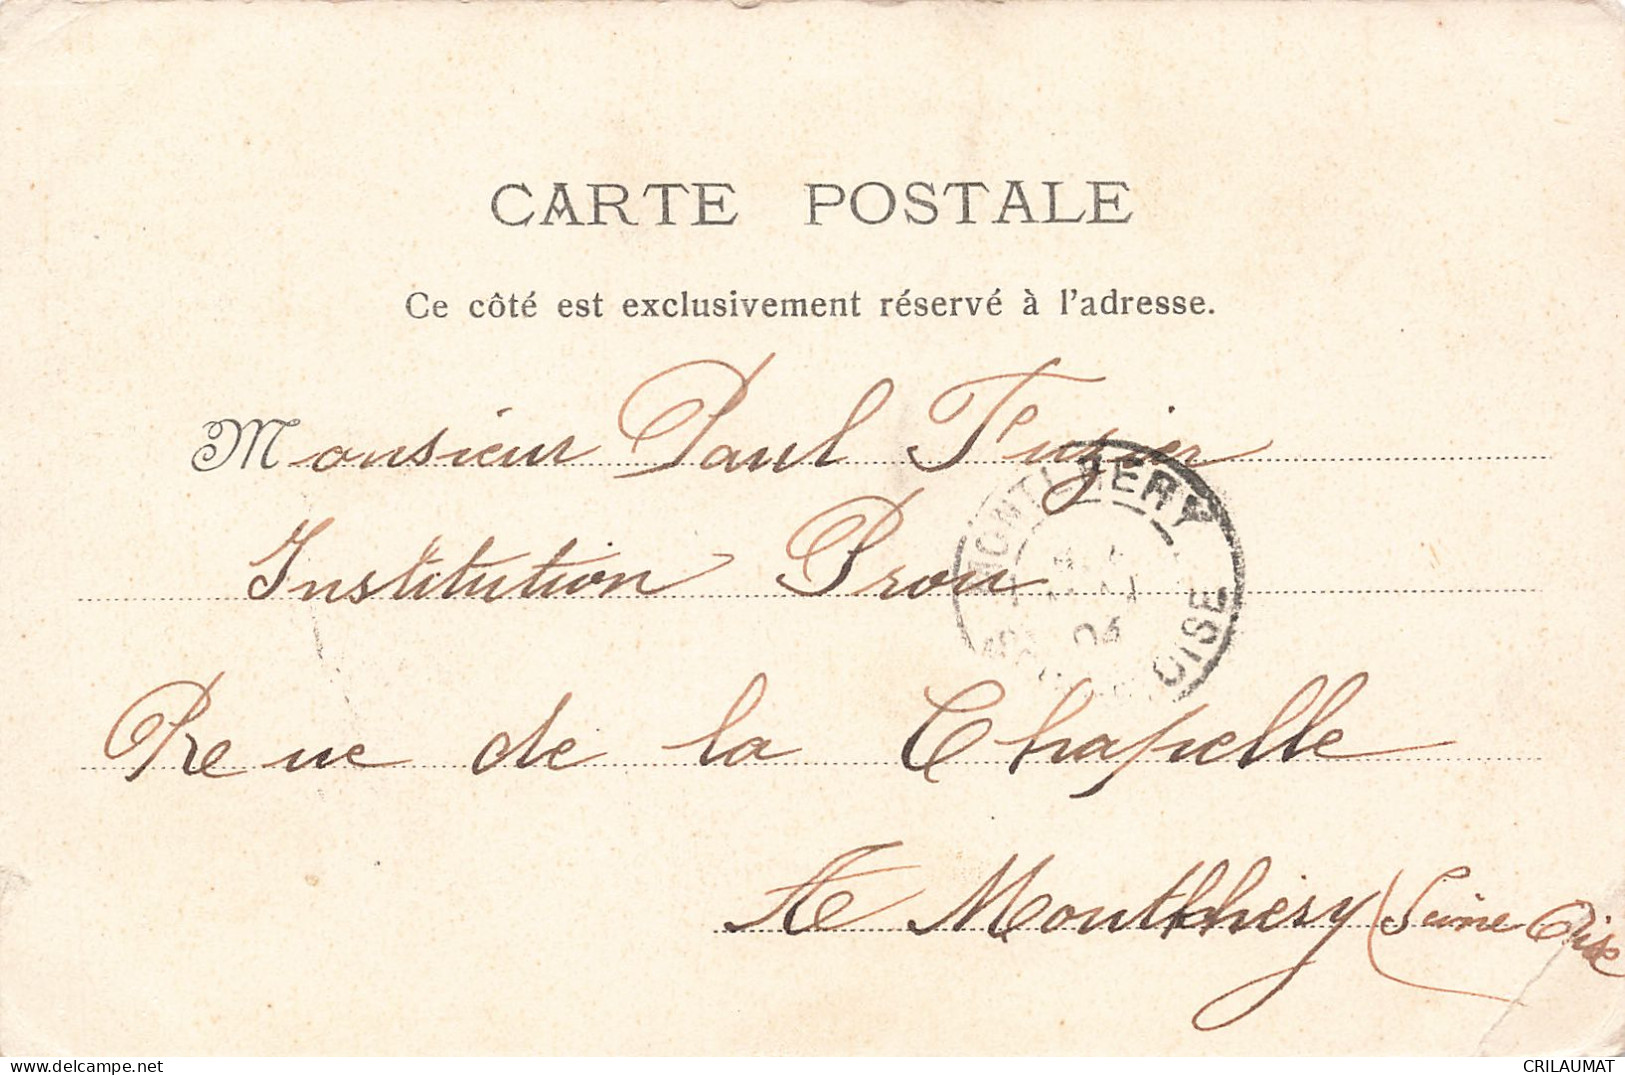 CARTE POSTALE
Ce côté est exclusivement réservé à l'adresse.
Monsieur Paul
Institution Prou
Rue de la Chapelle
A Montlhéry (Seine Oise
MONTLHERY
OISE
04
www.delcampe.net
CRILAUMAT